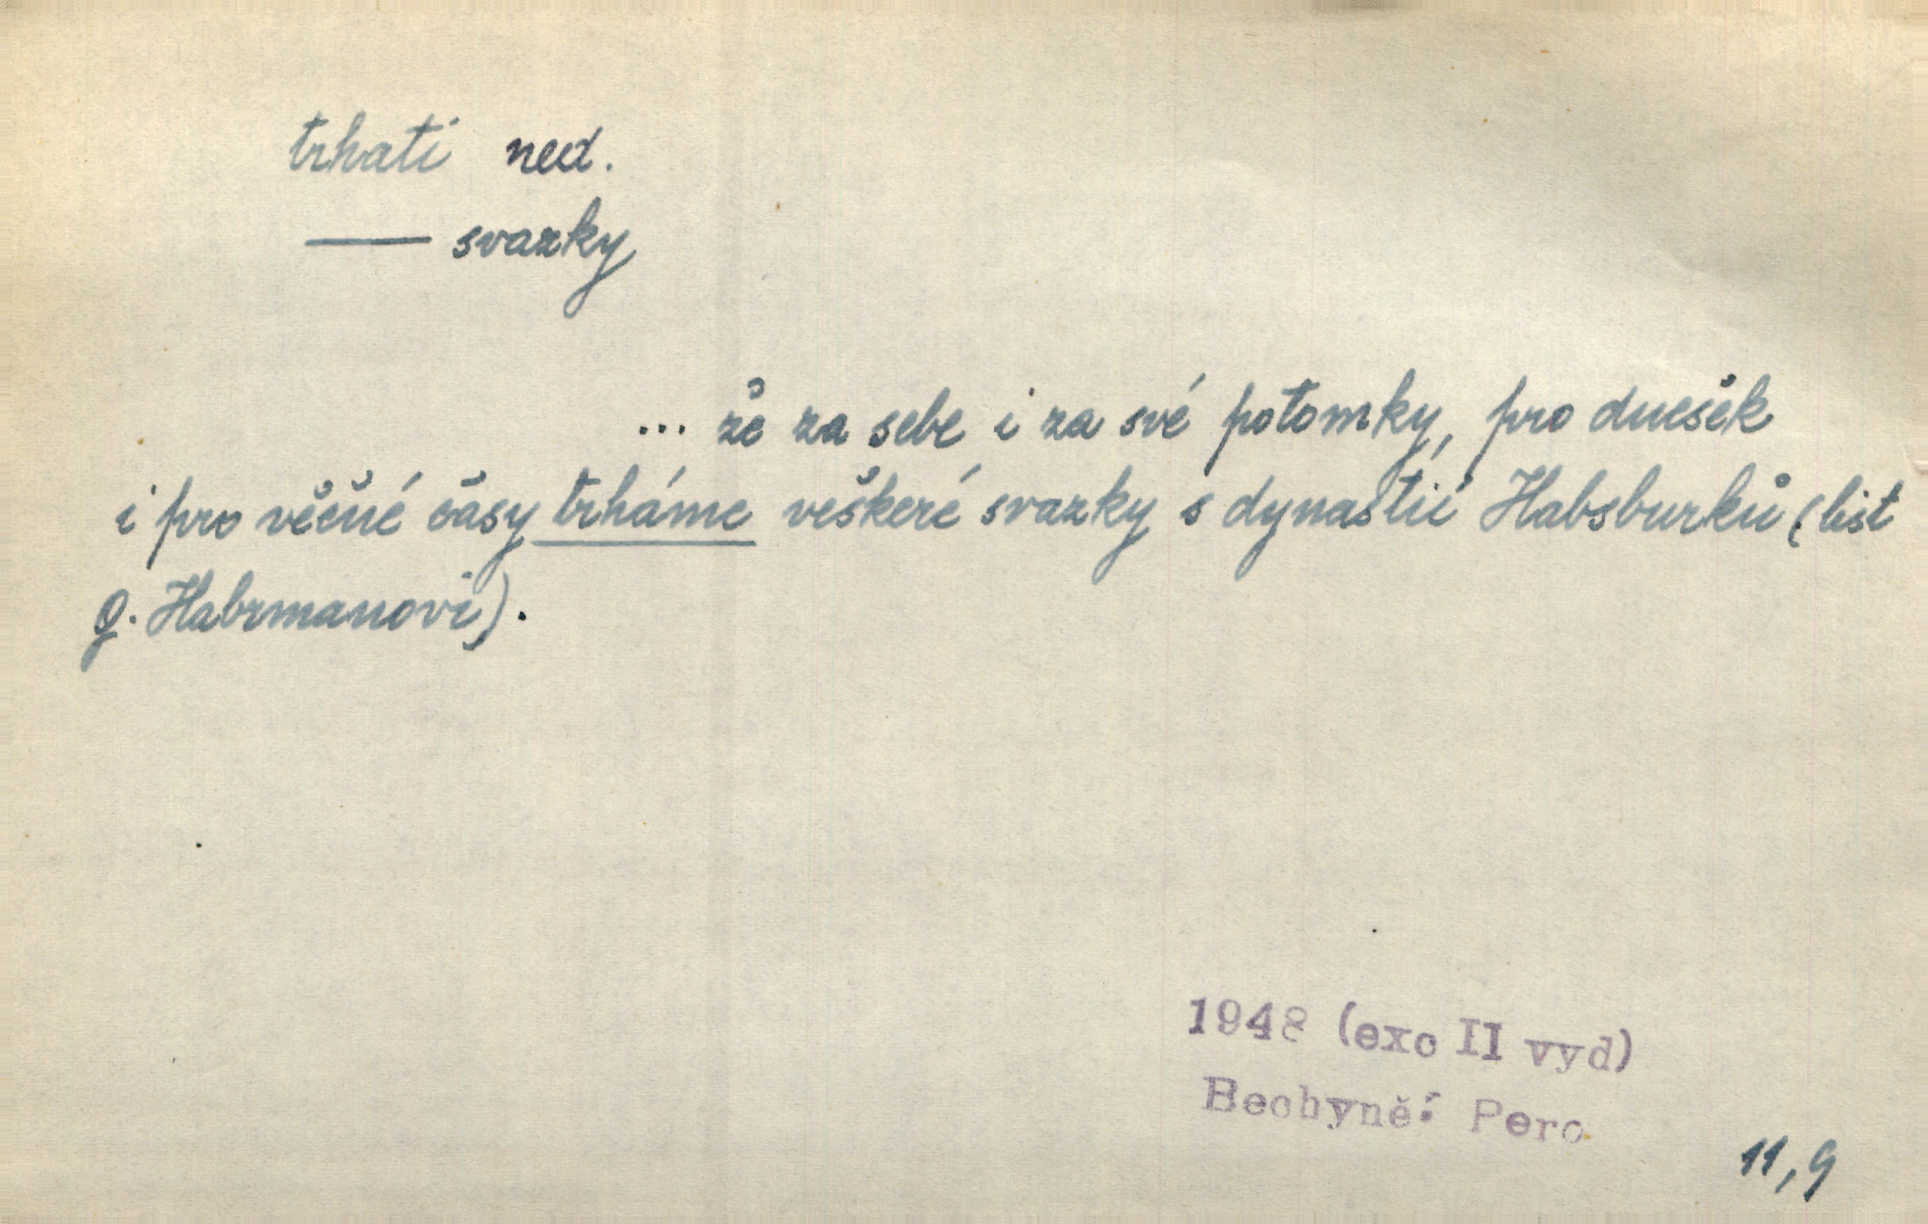 trhati ned.
—— svazky
... že za sebe i za své potomky, pro dnešek
i pro věčné časy trháme veškeré svazky s dynastií Habsburků (list
G. Habrmanovi).
1948 (exc II vyd)
Bechyně: Pero
11,9